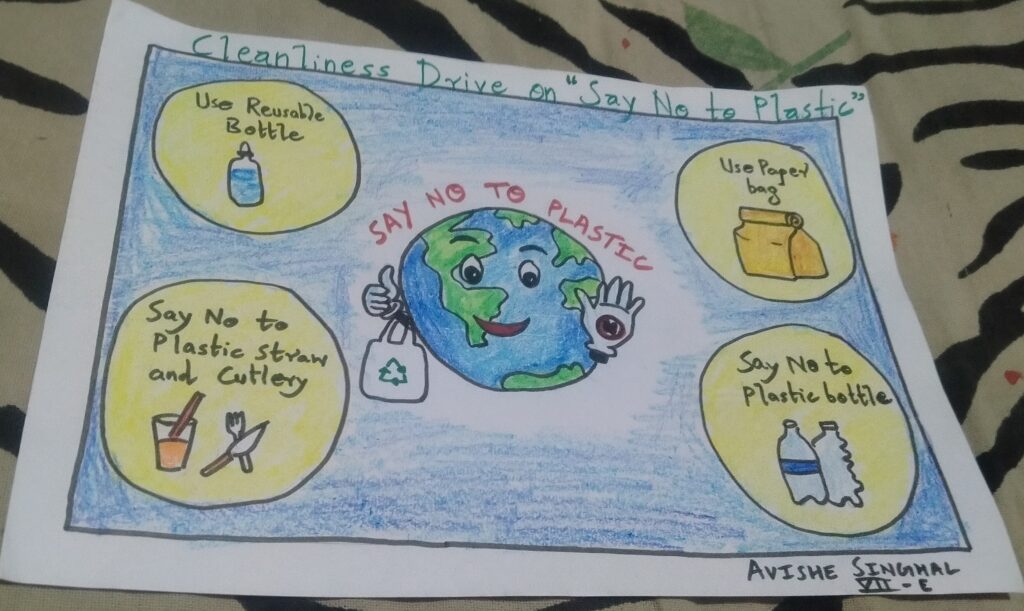 Cleanliness Drive on "Say No to Plastic"
Use Reusable
Bottle
Use Paper
bag
SAY NO TO PLASTIC
Say No to
Plastic Straw
and Cutlery
Say No to
Plastic bottle
AVISHE SINGHAL
VII-E